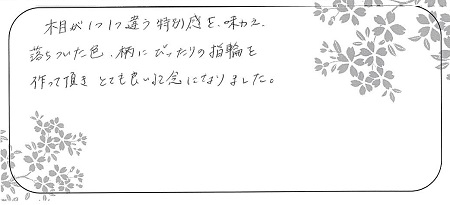 木目が1つ1つ違う特別感を、味わえ、
落ちついた色、柄にぴったりの指輪を
作って頂きとても良い記念になりました。